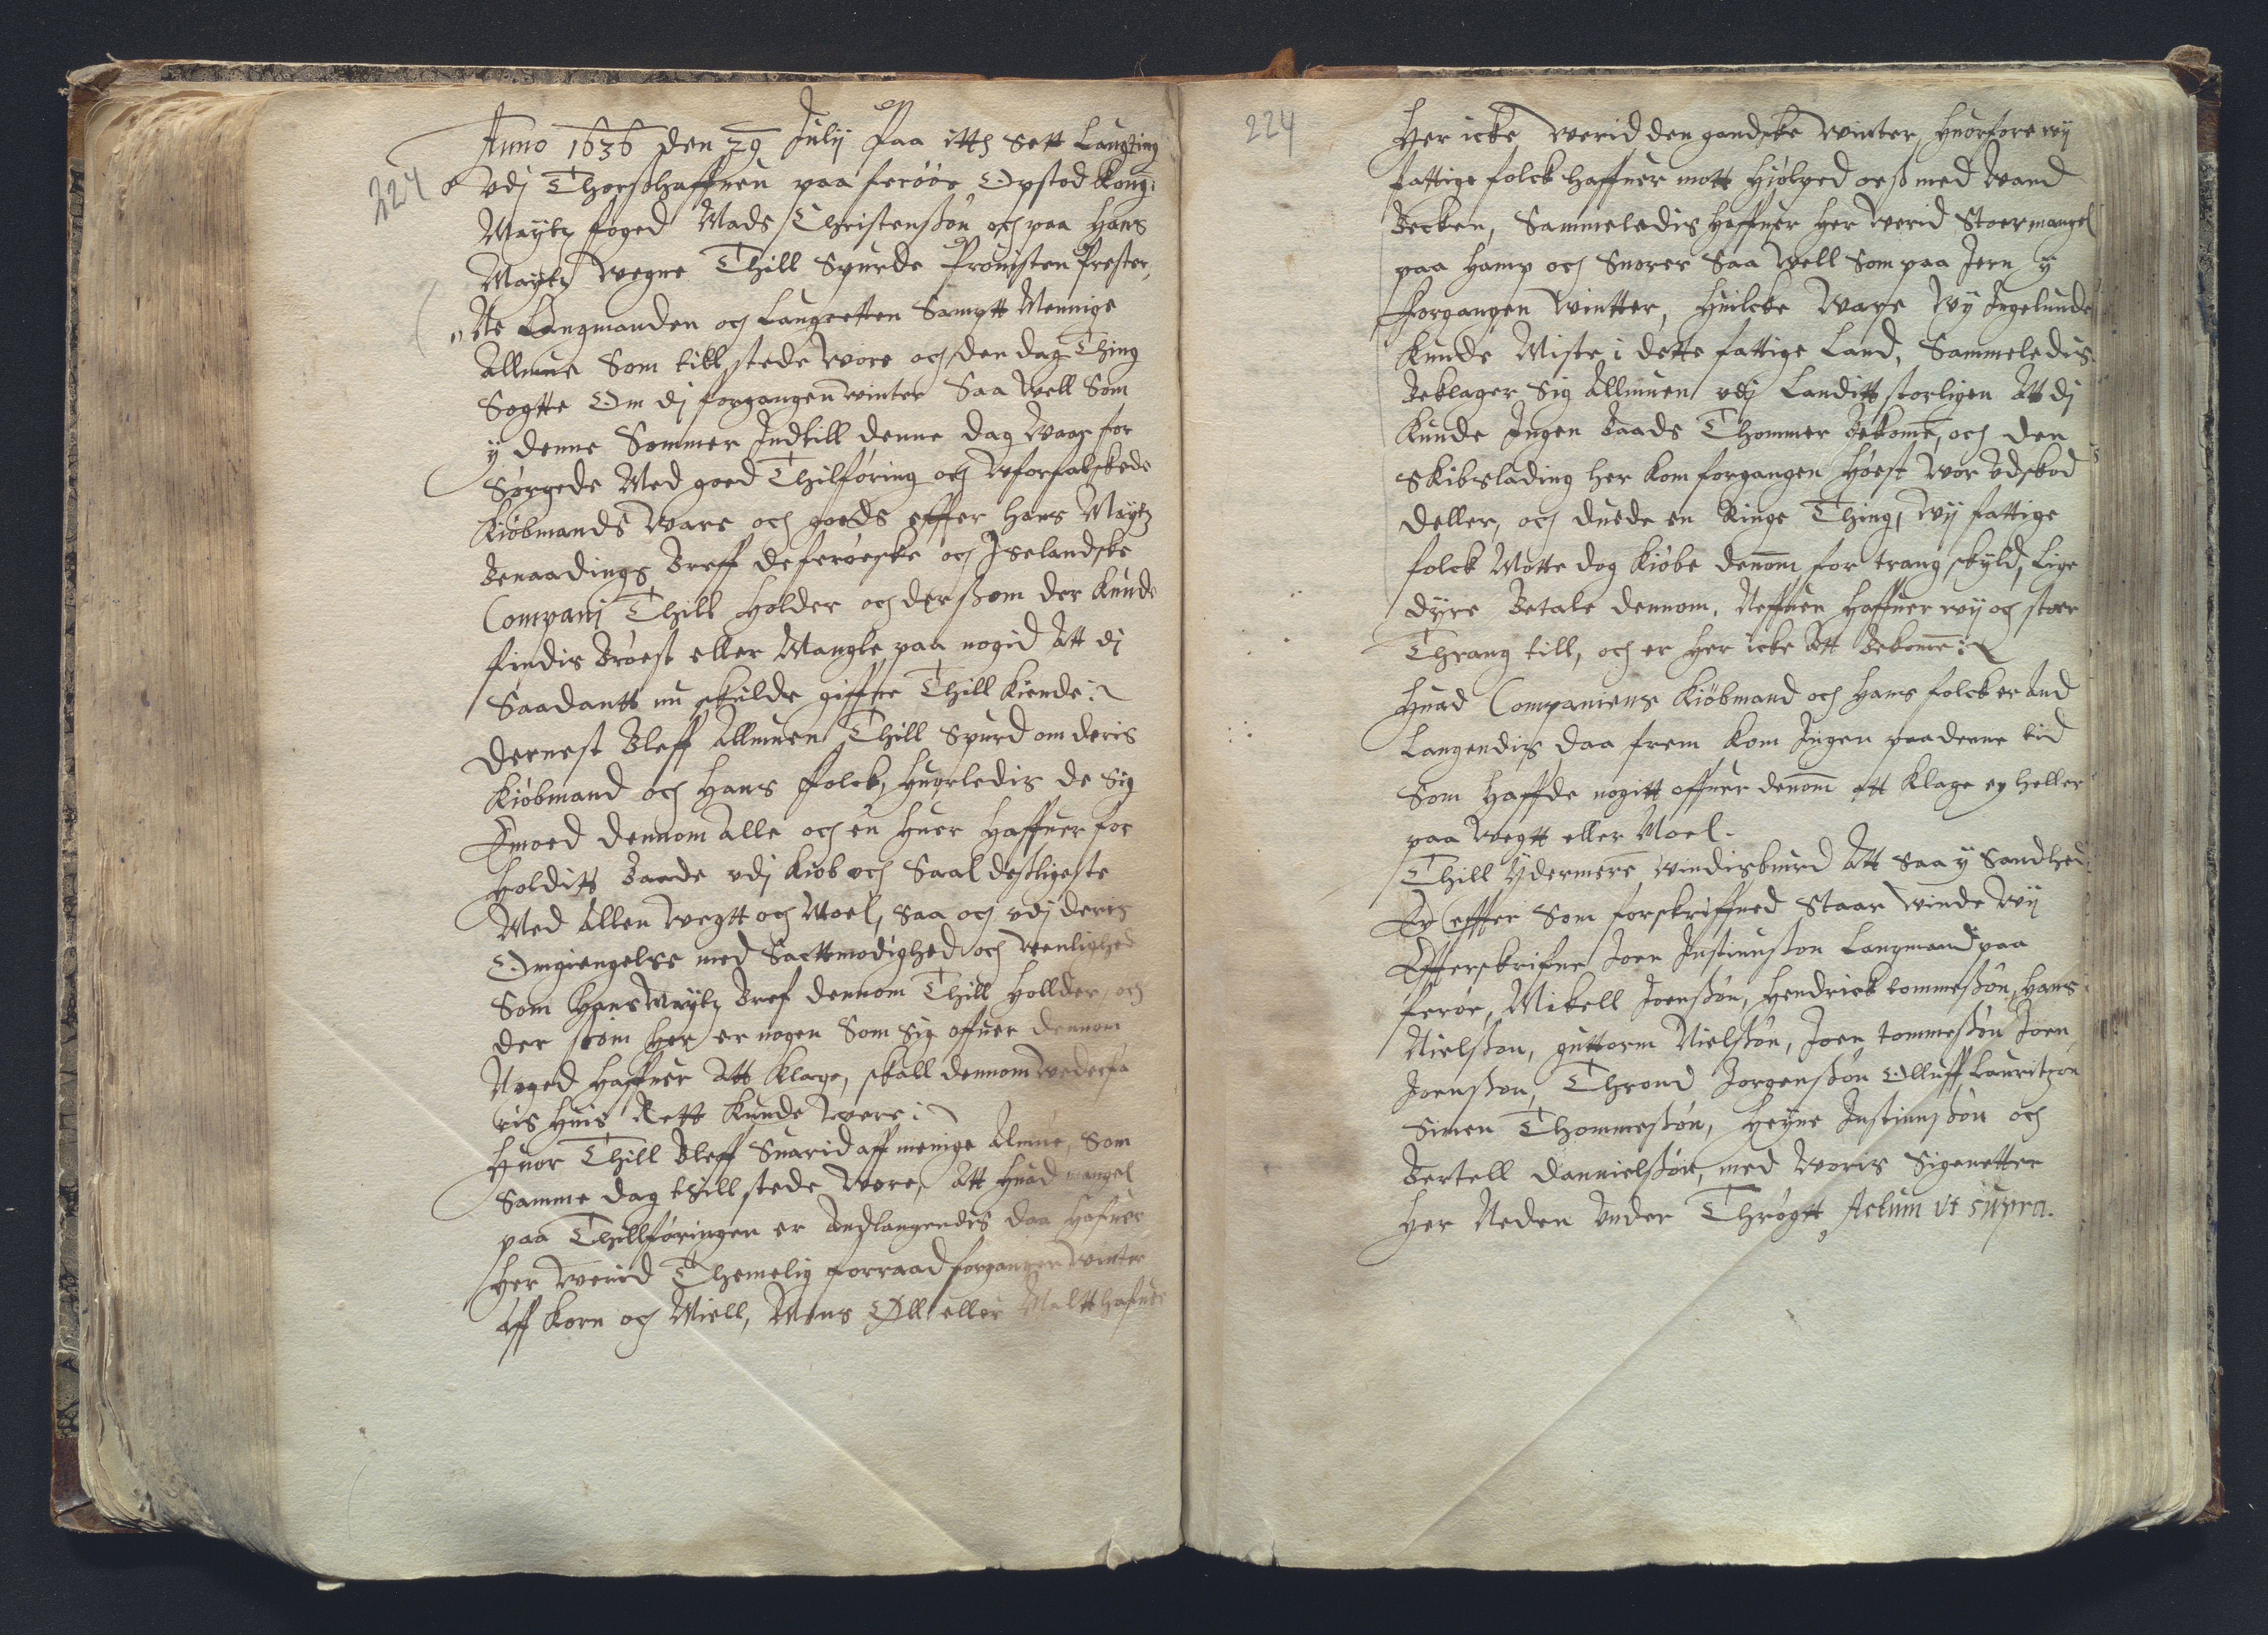 224
Anno 1636 den 29 Julij Paa itth Sett Laugting
Vdj Thorshaffnen paa ferööe Opstod Kong:
Maytz foged Mads Christensøn och paa Hans
Maytz wegne Thill Spurde Prouisten Prester,
Ne Laugmanden och Laugretten Samptt Mennige
Allmue Som till stede wore och den dag Thing
Sogtte Om dj forgangen winter Saa well Som
y denne Sommer Indtill denne dag waar for
Sørgede Med goed Thilføring och wforfalskede
Kiöbmands ware och goeds effter Hans Maytz
Benaadings Breff de feröeske och Iselandske
Companj Thill Holder och derssom der Kunde
findis Bröest eller Mangle paa nogid Att dj
Saadantt nu skulde giffue Thill Kiende:
Dernest Bleff Allmuen Thill Spurd om deris
Kiöbmand och Hans folck, Huorledis de Sig
Imoed dennom Alle och en Huer Haffuer for
Holditt Baade vdj Kiöb och Saal desligeste
Med Allen wegtt och Moel, saa och vdj deris
Omgiengelse med Sacttmodighed och wenlighed
Som Hans Maytz Bref dennom Thill Hollder, och
der som Her er nogen Som Sig offuer dennom
Noged Haffuer Att Klage, skall dennom wederfa
ris Huis Rett Kunde were:
Huor Thill Bleff Suarid aff menige Almue, Som
Samme dag thill stede wore, Att Huad mangel
paa Thillføringen er Andlangendis daa Hafuer
Her werid Themelig forraad forgangen winter
Aff Korn och Miell, Mens Øll eller Maltt hafuer
224
Her icke werid den gandske winter, Huorfore wij
fattige folck haffuer mott Hiölped oess med wand
Becken, Sammeledis Haffuer Her werid Stoer mangel
paa Hamp och Snorer Saa well Som paa Jern y
forgangen wintter, Huilcke ware wy Ingelunde
Kunde Miste i dette fattige Land, Sammeledis
Beklager Sig Allmuen vdj Landitt storligen Att dj
Kunde Ingen Baads Thommer Bekome, och den
Skibslading her kom forgangen Höest wor vdskod
deller, och duede en Ringe Thing, wij fattige
folck Motte dog Kiöbe dennom for trang skyld, Lige
dyre Betale dennom, Neffuer Haffuer wij och stoer
Thrang till, och er Her icke Att Bekome:
Huad Companiens Kiöbmand och Hans folck er And
Langendis daa frem Kom Ingen paa denne tid
Som Haffde nogitt offuer dennom att Klage ey heller
paa wegtt eller Moel.
Thill Ydermere windisburd Att saa y Sandhed
Er effter Som forskriffued Staar winde wij
Effterskrifne Joen Justinusson Laugmand paa
feröe, Mikell Joensson, Hendrick tommessön, Hans
Nielsson, guttorm Nielssön, Joen tommessön Joen
Joensson, Thrond Jörgenssön Olluff Lauritzön
Simen Thommessön, Heyne Justinussön och
Bertell Danielssön, med woris Signetter
Her Neden Under Thrögtt, Actum ut supra.